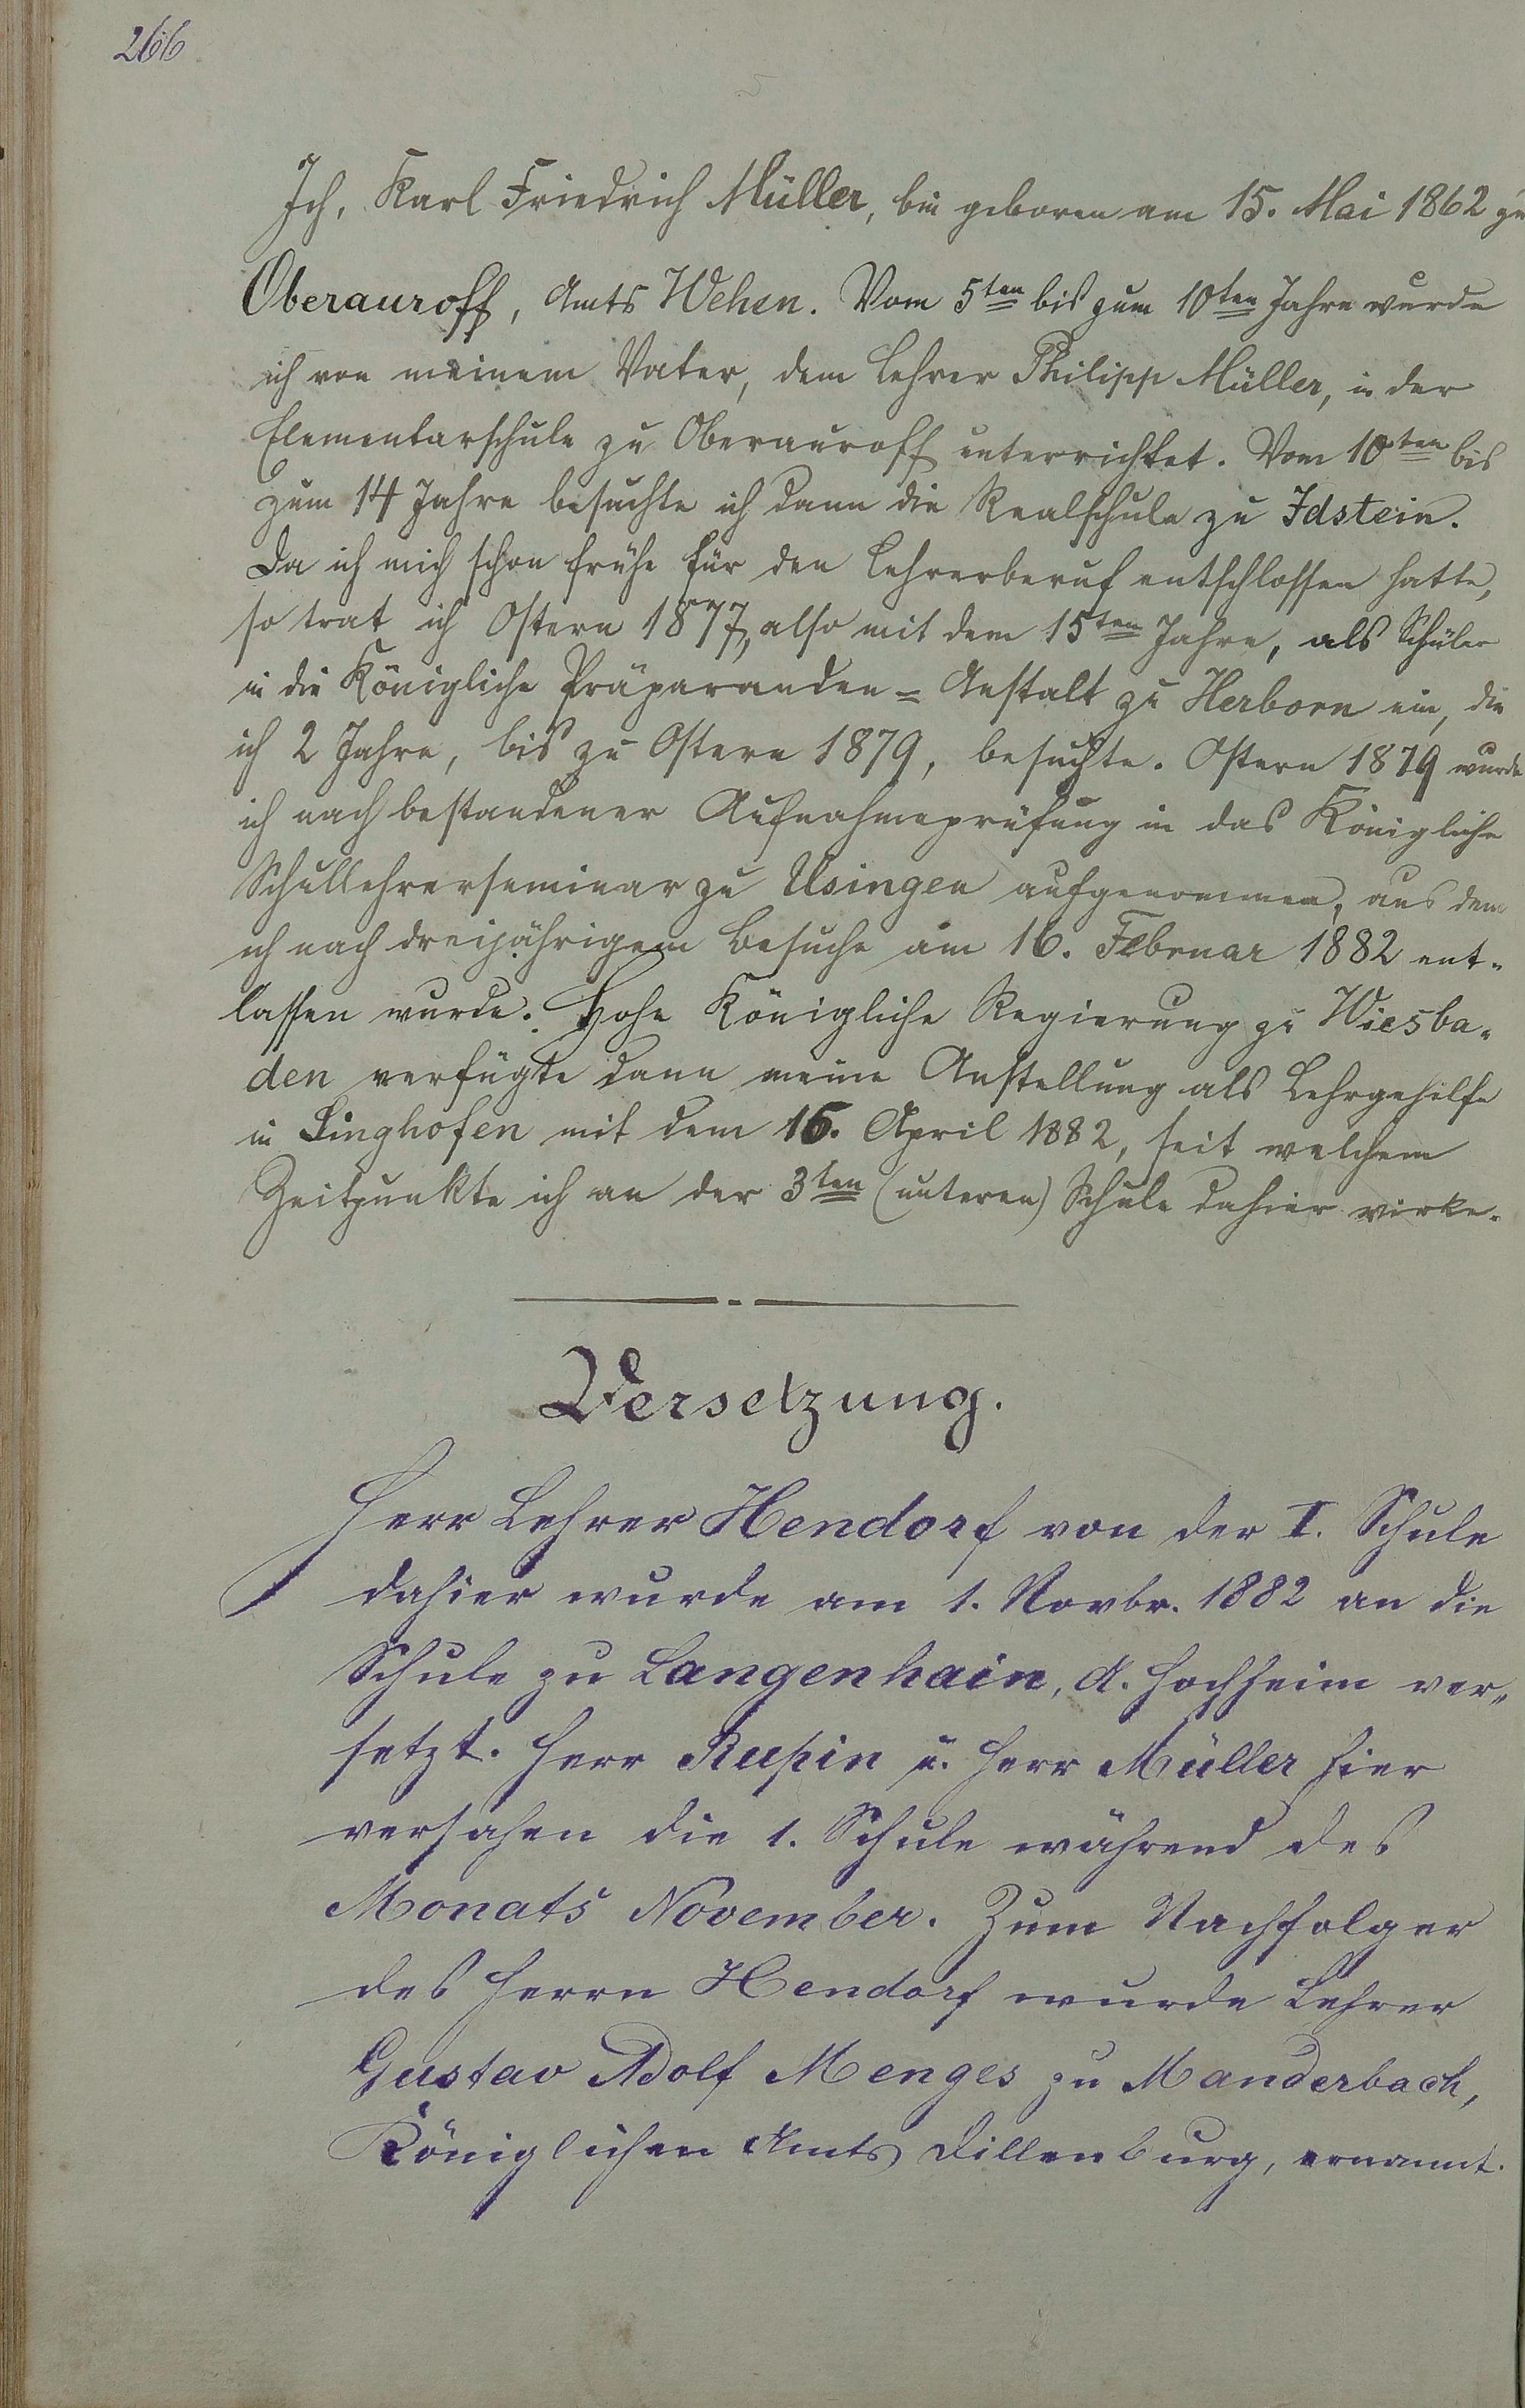 266
Ich, Karl Friedrich Müller, bin geboren am 15. Mai 1862 zu
Oberauroff, Amts Wehen. Vom 5ten bis zum 10ten Jahre wurde
ich von meinem Vater, dem Lehrer Philipp Müller, in der
Elementarschule zu Oberauroff unterrichtet. Vom 10ten bis
zum 14 Jahre besuchte ich dann die Realschule zu Idstein.
Da ich mich schon frühe für den Lehrerberuf entschlossen hatte,
so trat ich Ostern 1877, also mit dem 15ten Jahre, als Schüler
in die Königliche Präparanden-Anstalt zu Herborn ein, die
ich 2 Jahre, bis zu Ostern 1879, besuchte. Ostern 1879 wurde
ich nach bestandener Aufnahmeprüfung in das Königliche
Schullehrerseminar zu Usingen aufgenommen, aus dem
ich nach dreijährigem Besuche am 16. Februar 1882 ent-
lassen wurde. Hohe Königliche Regierung zu Wiesba-
den verfügte dann meine Anstellung als Lehrgehilfe
in Singhofen mit dem 16. April 1882, seit welchem
Zeitpunkte ich an der 3ten (unteren) Schule dahier wirke.
Versetzung.
Herr Lehrer Hendorf von der I. Schule
dahier wurde am 1. Novbr. 1882 an die
Schule zu Langenhain, A. Hochheim ver-
setzt. Herr Rupin u. Herr Müller hier
versahen die 1. Schule während des
Monats November. Zum Nachfolger
des Herrn Hendorf wurde Lehrer
Gustav Adolf Menges zu Manderbach,
Königlichen Amts Dillenburg, ernannt.